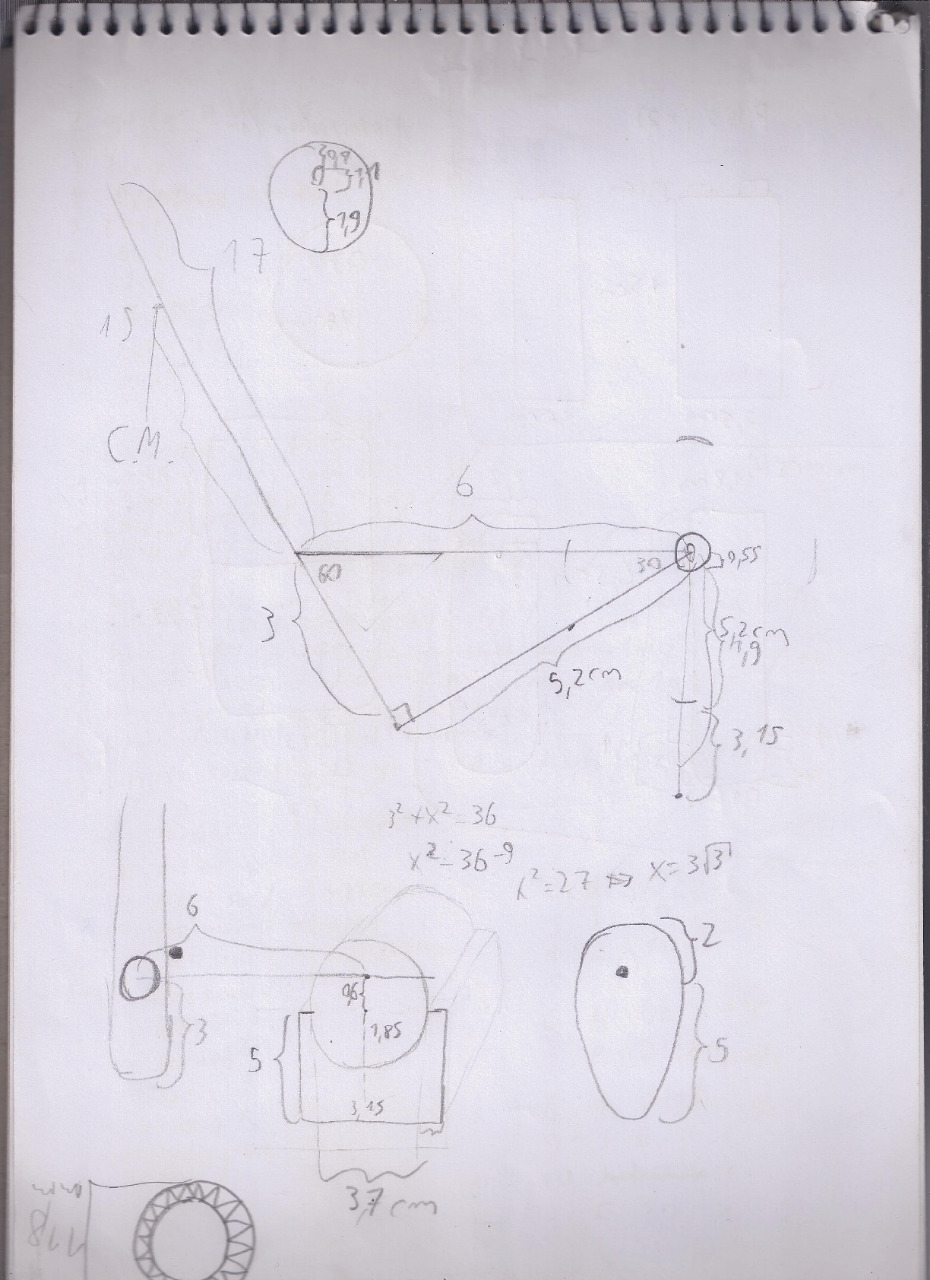 1,9
17
15
C.M.
6
60
30
0,55
3
5,2cm
4,9
5,2cm
3,15
3²+x²=36
x²=36-9
x²=27 ⇔ x=3√3
6
2
0,6
3
5
1,85
5
3,15
3,7cm